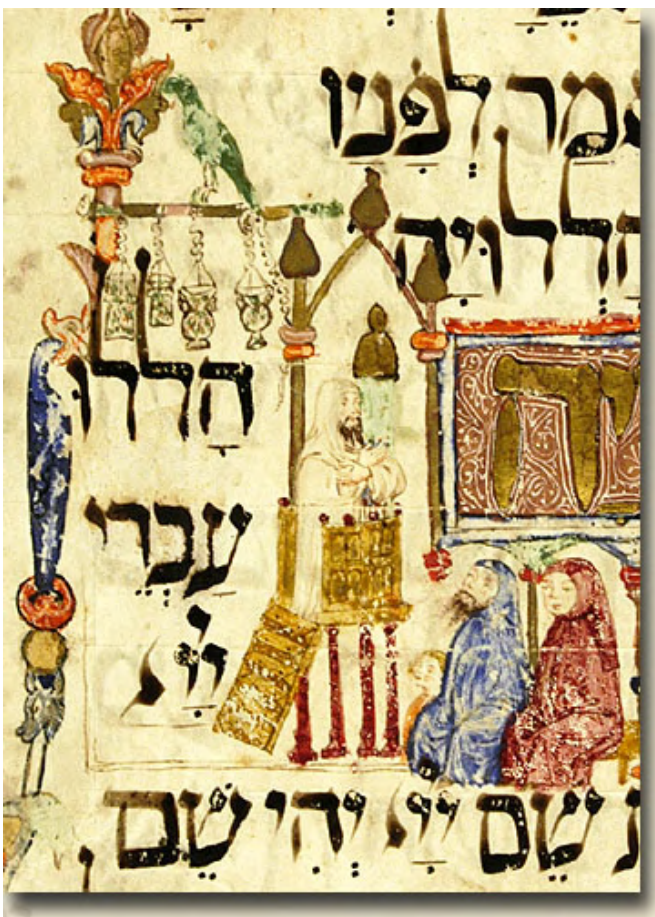 לְפָנָיו
הַלְלוּיָהּ
הַלְלוּ
עַבְדֵי
יְיָ
שֵׁם יְיָ יְהִי שֵׁם